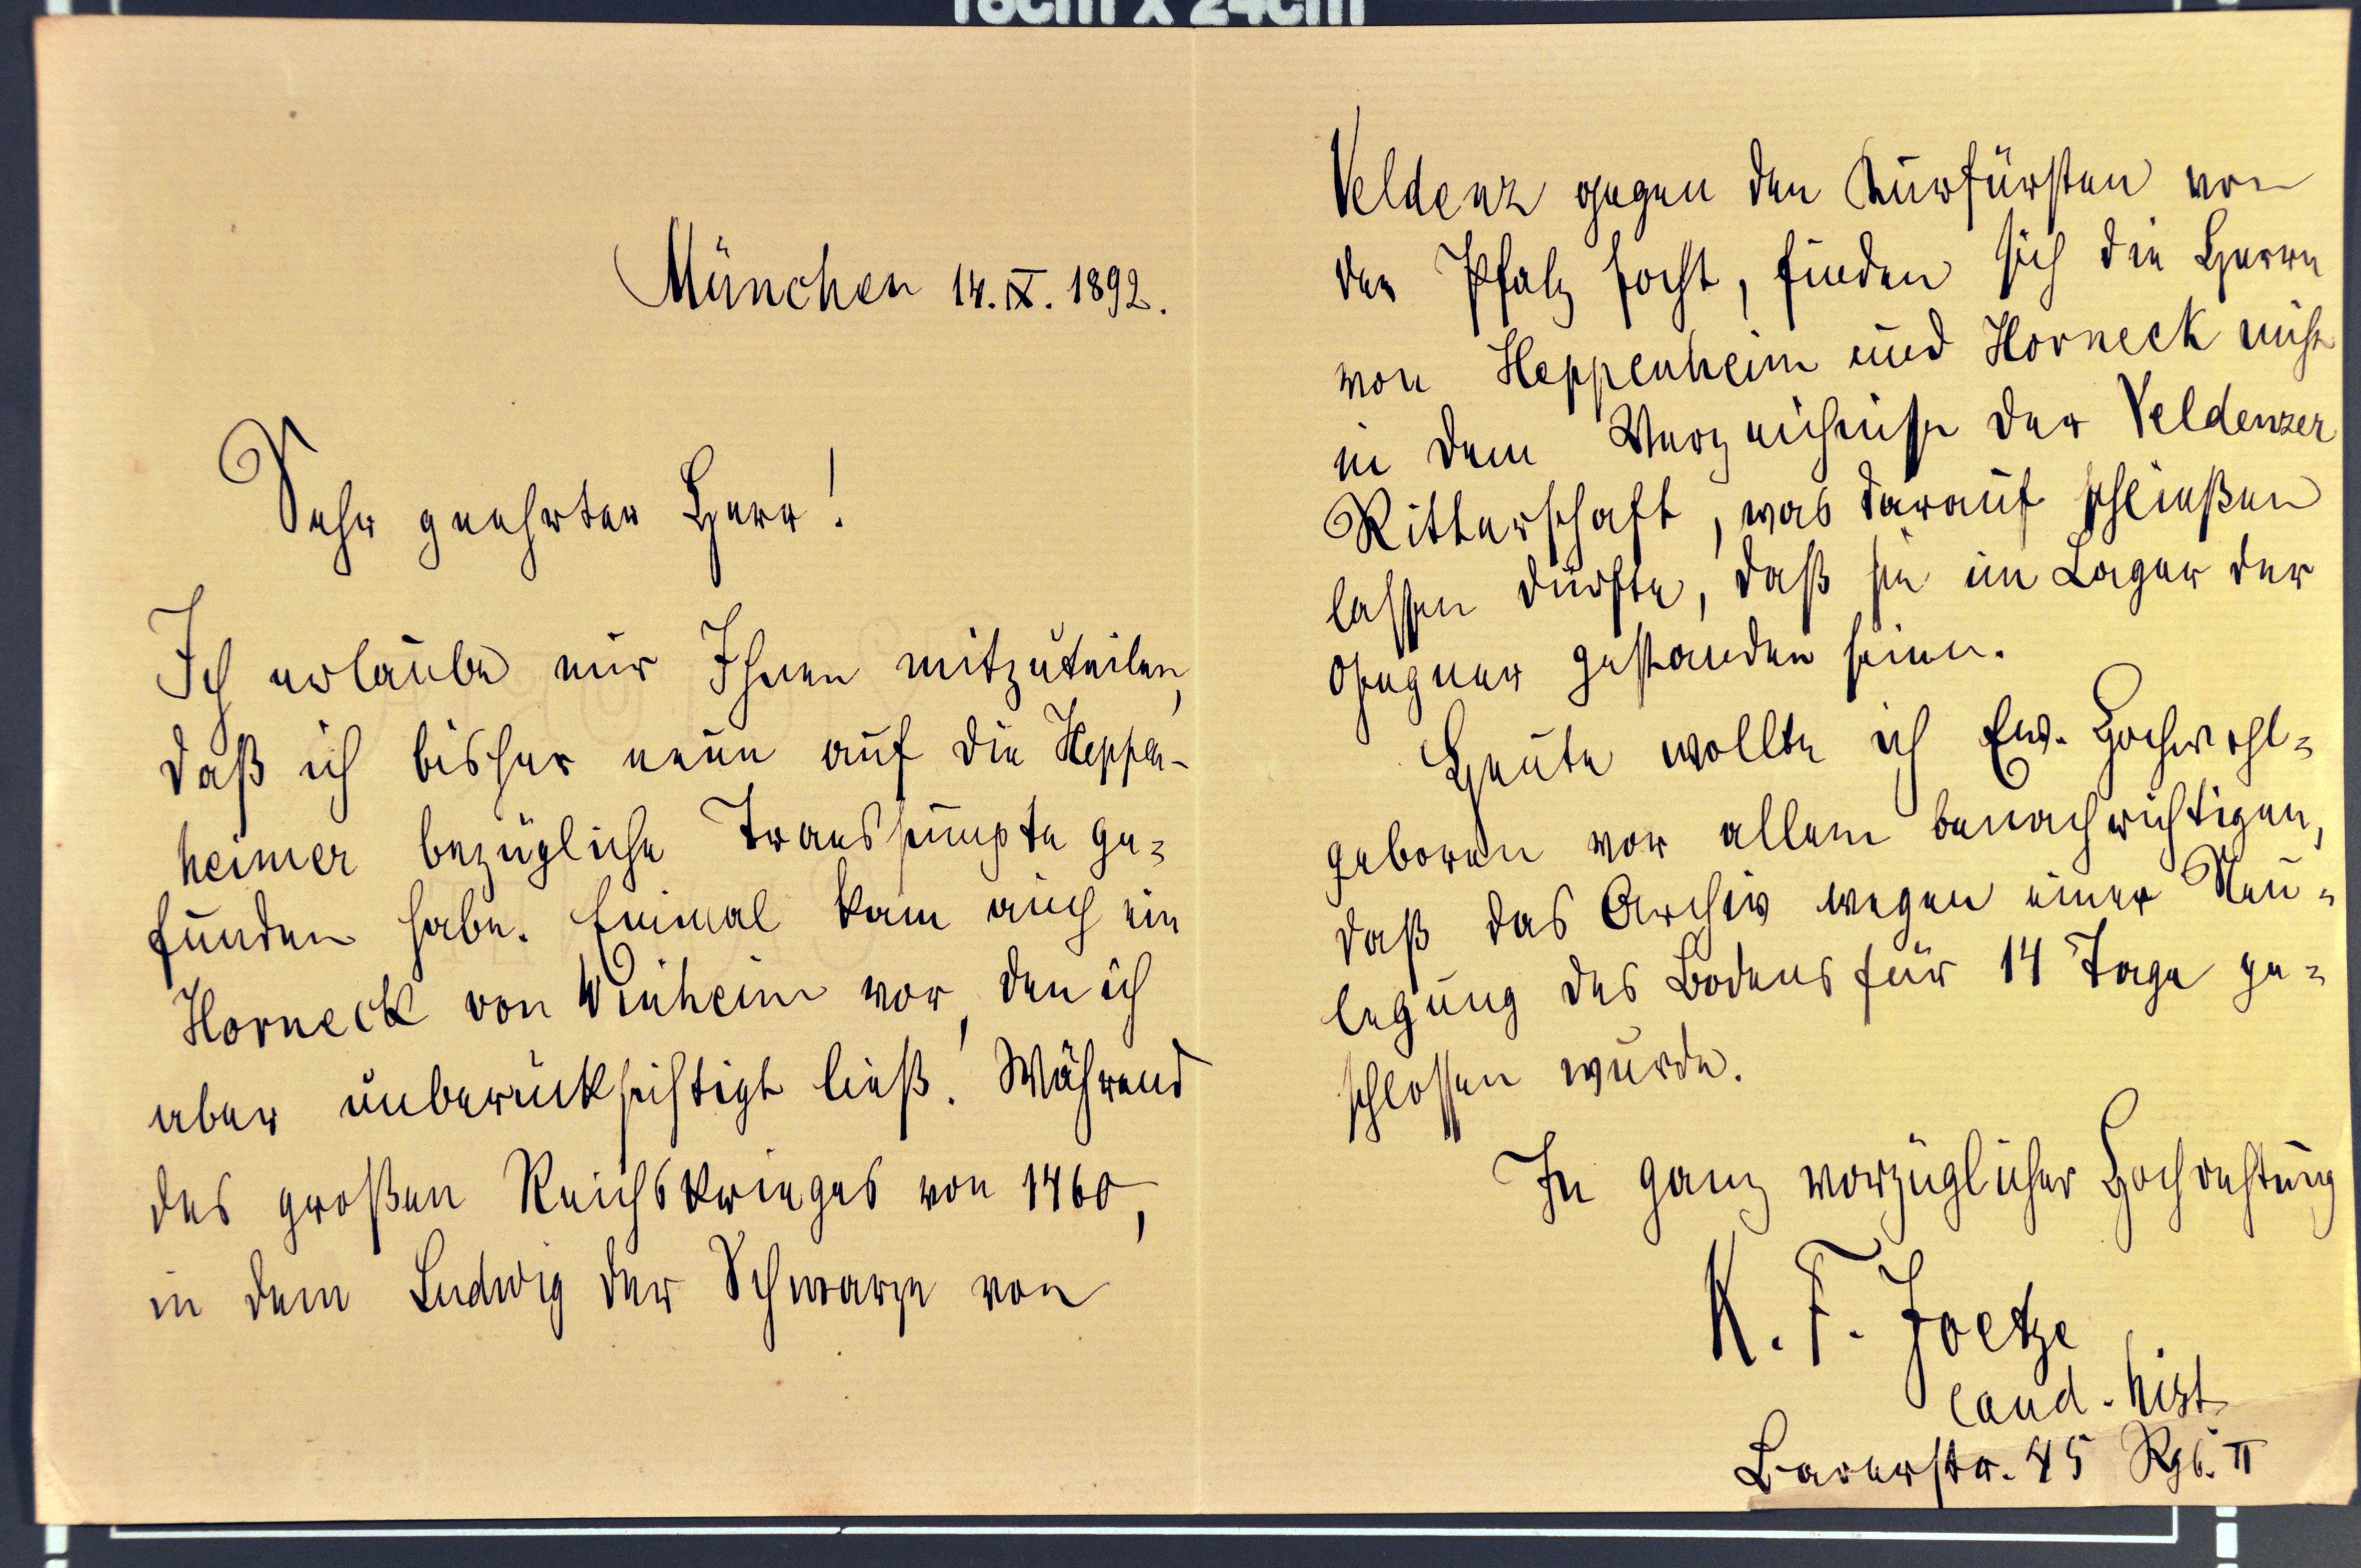 18cm x 24cm
München 14. IX. 1892.
Sehr geehrter Herr!
Ich erlaube mir Ihnen mitzuteilen,
daß ich bisher neun auf die Heppen-
heimer bezügliche Transsumpte ge=
funden habe. Einmal kam auch ein
Horneck von Winheim vor, den ich
aber unberücksichtigt ließ. Während
des großen Reichskrieges von 1460,
in dem Ludwig der Schwarze von
Veldenz gegen den Kurfürsten von
der Pfalz focht, finden sich die Herrn
von Heppenheim und Horneck nicht
in dem Verzeichnisse der Veldenzer
Ritterschaft, was darauf schließen
lassen dürfte, daß sie im Lager der
Gegner gestanden seien.
Heute wollte ich Ew. Hochwohl=
geboren vor allem benachrichtigen,
daß das Archiv wegen einer Neu=
legung des Bodens für 14 Tage ge=
schlossen wurde.
In ganz vorzüglicher Hochachtung
K. F. Joetze
cand. hist
Barerstr. 45 Rgb. II